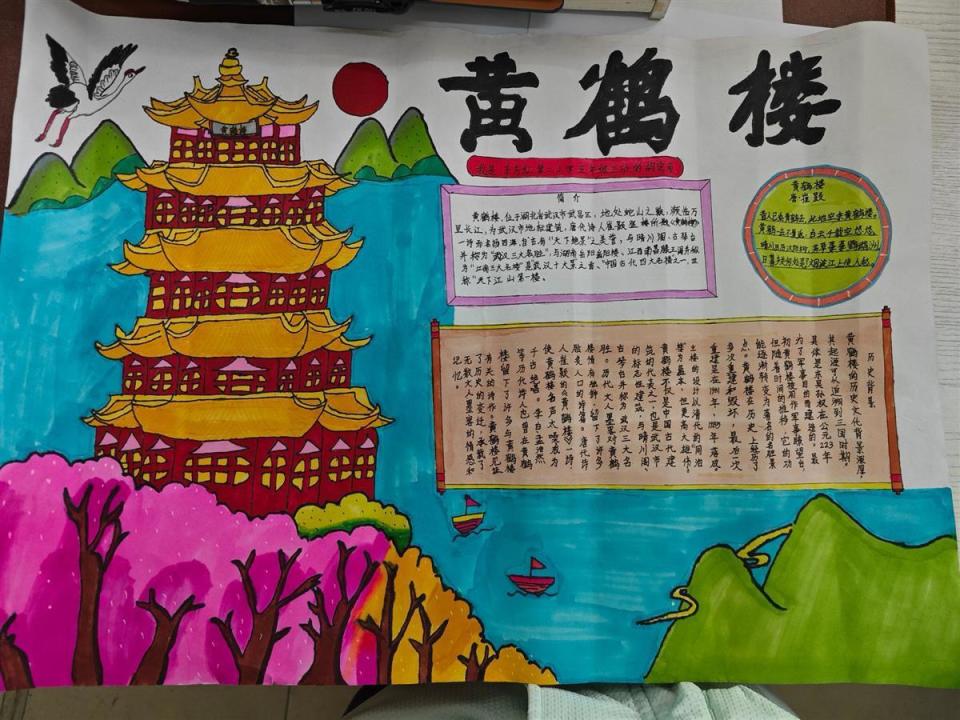 黄鹤楼
黄鹤楼
简介
黄鹤楼,位于湖北省武汉市武昌区,地处蛇山之巅,濒临万
里长江,为武汉市地标建筑,唐代诗人崔颢登楼所题《黄鹤楼》
一诗为名扬四海,自古有“天下绝景”之美誉,与晴川阁、古琴台
并称为“武汉三大名胜”,与湖南岳阳岳阳楼、江西南昌滕王阁并称
为“江南三大名楼”是武汉十大景之首、“中国古代四大名楼之一、世
称“天下江山第一楼。
黄鹤楼
唐·崔颢
昔人已乘黄鹤去,此地空余黄鹤楼。
黄鹤一去不复返,白云千载空悠悠。
晴川历历汉阳树,芳草萋萋鹦鹉洲
日暮乡关何处是?烟波江上使人愁。
历史背景
黄鹤楼的历史文化背景深厚,
其起源可追溯到三国时期,
具体是东吴孙权在公元223年
为了军事目的而建造的。最
初黄鹤楼被用作军事瞭望台,
但随着时间的推移,它的功
能逐渐转变为著名的名胜景
点。黄鹤楼在历史上经历了
多次重建和毁坏,最后一次
重建是在1981年,1985年落成,
主楼的设计以清代的同治
楼为蓝本,但更高大雄伟。
黄鹤楼不仅是中国古代建
筑的代表之一,也是武汉市
的标志性建筑,与晴川阁
古琴台并称为武汉三大名
胜。历代文人墨客对黄鹤
楼情有独钟,留下了许多
脍炙人口的诗篇。唐代诗
人崔颢的《黄鹤楼》一诗
使黄鹤楼名声大噪成为
千古绝唱。李白、孟浩然
等历代诗人也曾在黄鹤
楼留下了许多与黄鹤楼
有关的诗作。黄鹤楼见证
了历史的变迁,承载了
无数文人墨客的情感和
记忆。